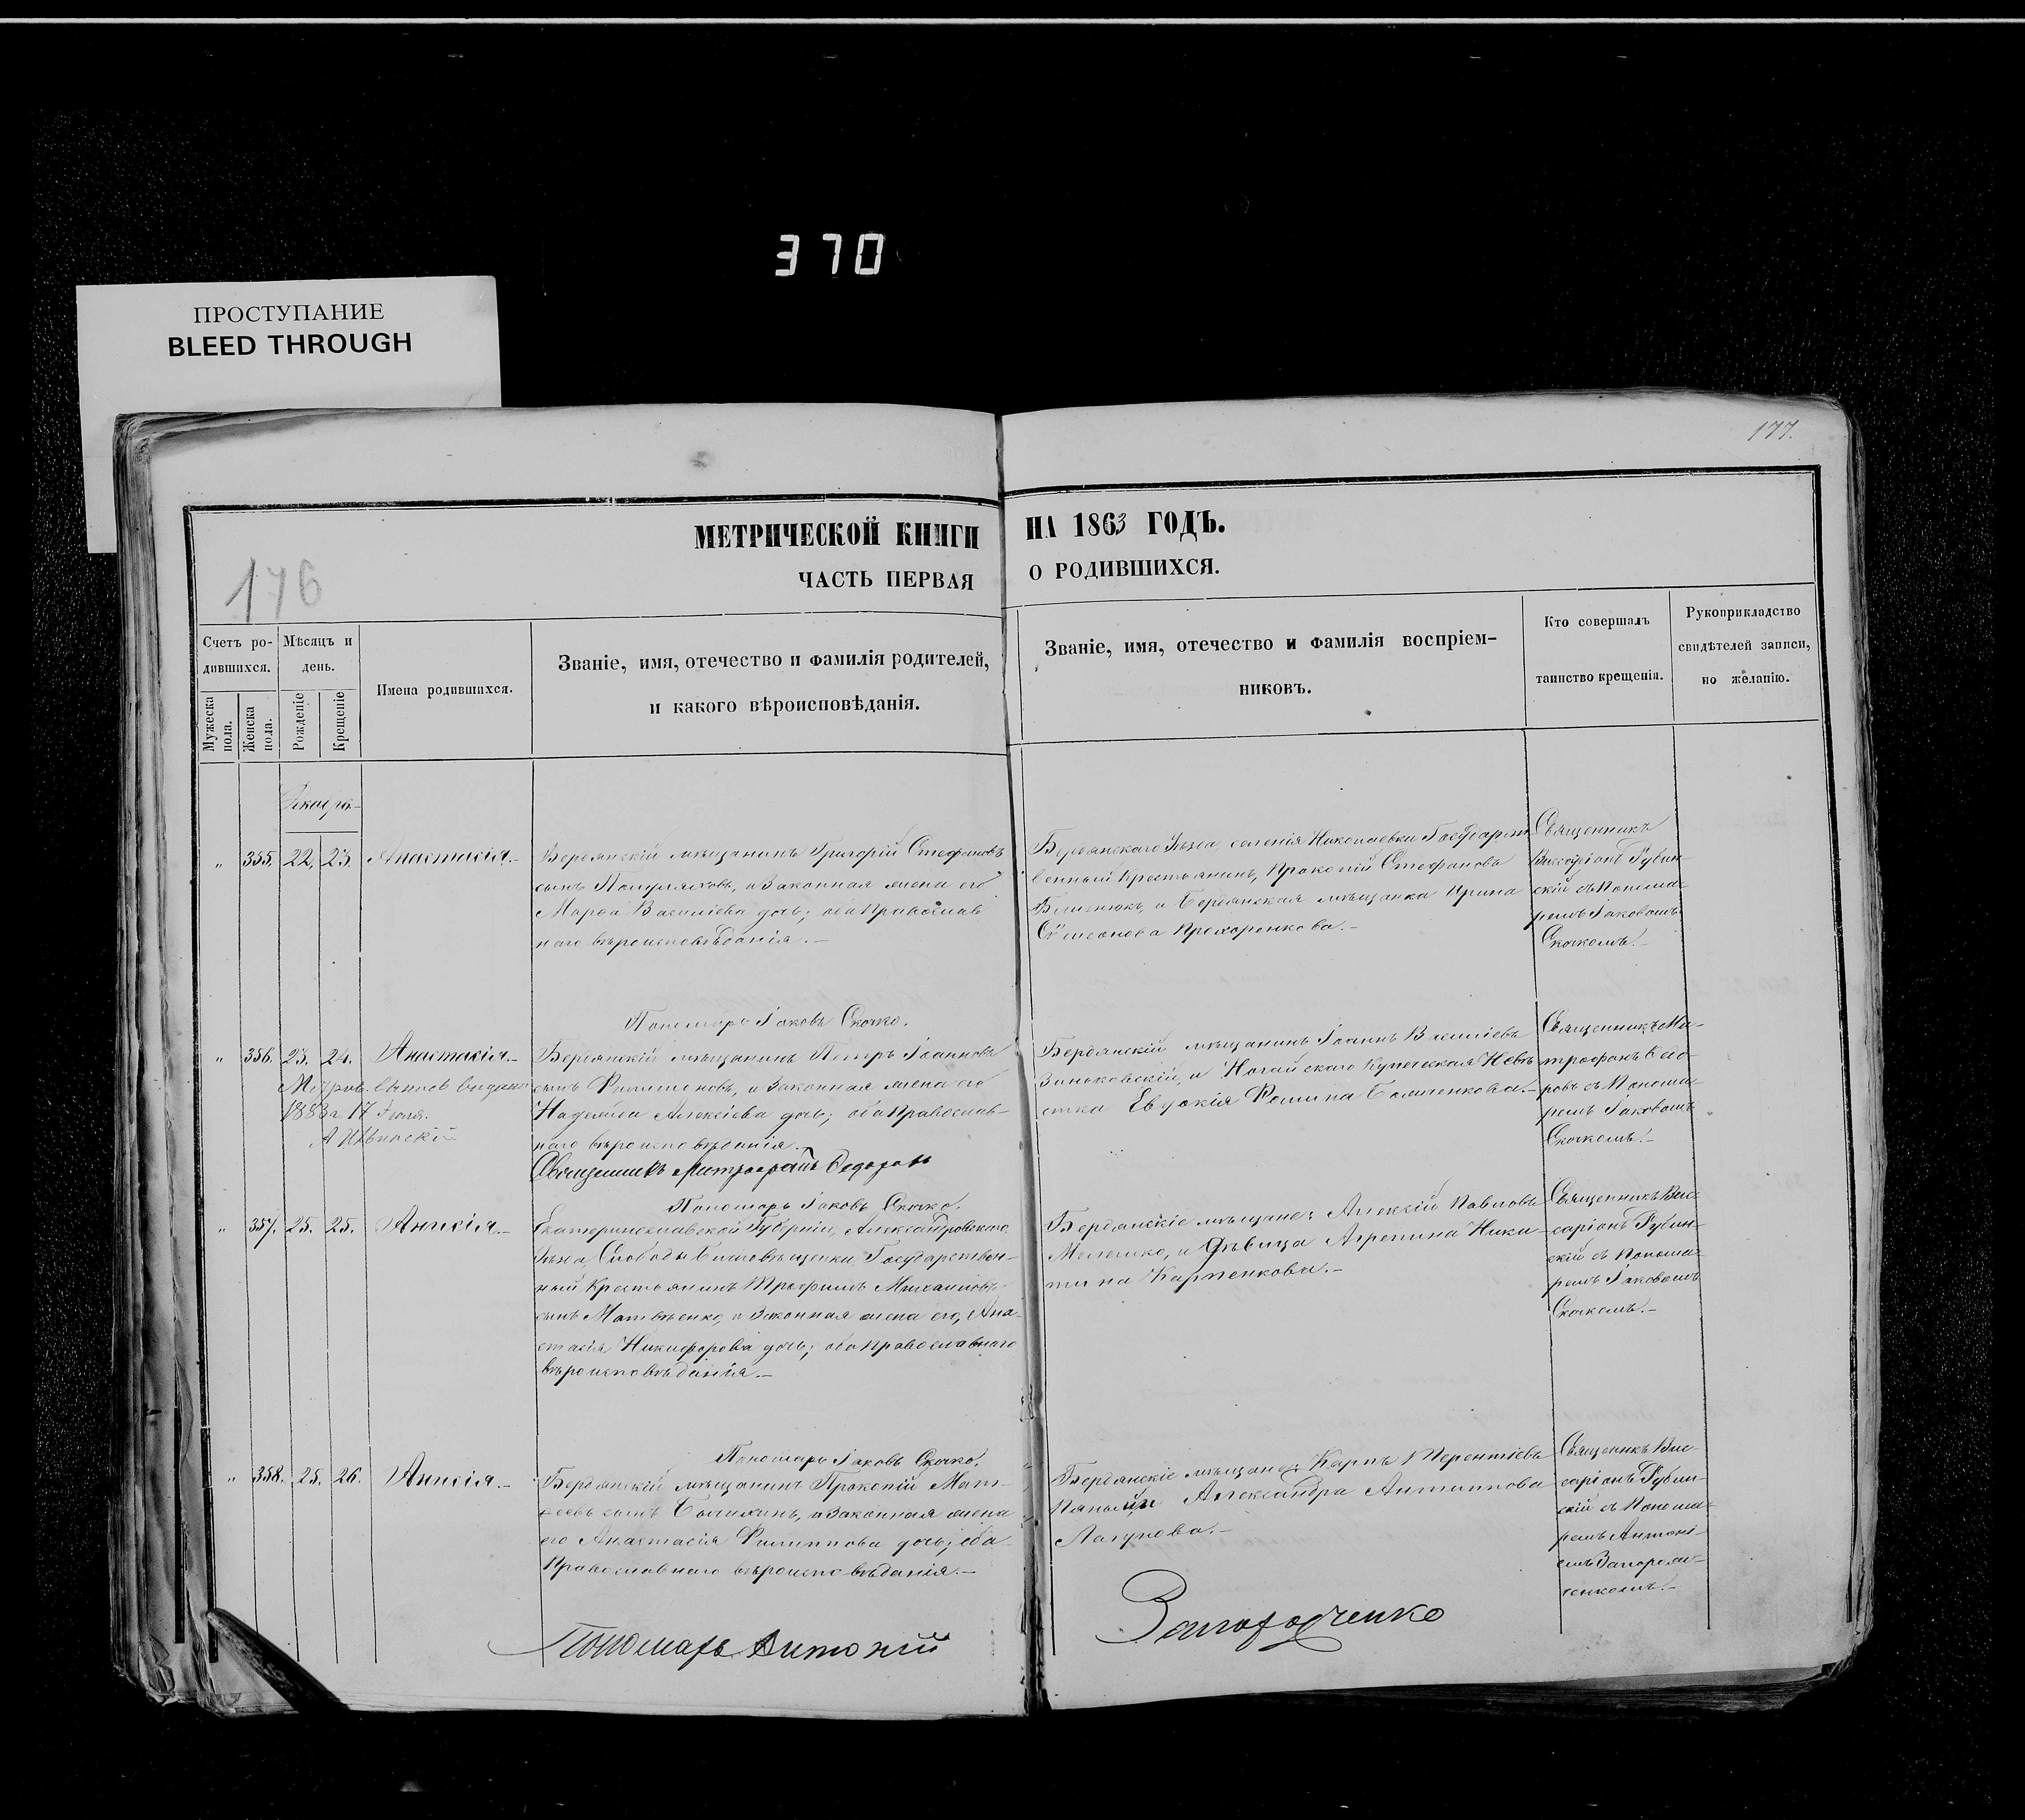 370
ПРОСТУПАНИЕ
BLEED THROUGH
177.
МЕТРИЧЕСКОЙ КНИГИ НА 1863 ГОДЪ.
176
ЧАСТЬ ПЕРВАЯ О РОДИВШИХСЯ.
Счетъ родившихся.
Мужеска пола.
Женска пола.
Мѣсяцъ и день.
Рожденіе
Крещеніе
Имена родившихся.
Званіе, имя, отечество и фамилія родителей,
и какого вѣроисповѣданія.
Званіе, имя, отечество и фамилія воспріем-
никовъ.
Кто совершалъ
таинство крещенія.
Рукоприкладство
свидѣтелей записи,
по желанію.
Декабрь
„ 355. 22. 23. Анастасія.-
Бердянскій мѣщанинъ Григорій Стефановъ
сынъ и законная жена его
Марѳа Василіева дочь; оба Православ
наго вѣроисповѣданія.-
Бердянскаго Уѣзда, селенія Николаевки Государст
венный крестьянинъ, Прокопій Стефановъ
и Бердянская мѣщанка Ирина
Сѵмеонова Прохоренкова.-
Священникъ
Виссаріонъ Рубин-
скій съ Понома-
ремъ Іаковомъ
Скочкомъ.-
Пономарь Іаковъ Скочко.
„ 356. 23. 24. Анастасія.-
Метрич. выпись выдана
1883 г. 17 Іюля.
Бердянскій мѣщанинъ Петръ Іоанновъ
сынъ Филимоновъ, и законная жена его
Надежда Алексіева дочь; оба Православ-
наго вѣроисповѣданія.-
Священникъ Митрофанъ Ѳедоровъ
Бердянскій мѣщанинъ Іоаннъ Василіевъ
Зиньковскій, и Ногайскаго Купеческая Невѣ
стка Евдокія Ѳомина
Священникъ Ми-
трофанъ Ѳедо-
ровъ съ Понома-
ремъ Іаковомъ
Скочкомъ.-
Пономарь Іаковъ Скочко.
„ 357. 25. 25. Анисія.-
Екатеринославской Губерніи, Александровскаго
Уѣзда, Слободы Благовѣщенки Государствен-
ный Крестьянинъ Трофимъ Михаиловъ
сынъ Матвѣенко, и законная жена его, Ана-
стасія Никифорова дочь; оба Православнаго
вѣроисповѣданія.-
Бердянскіе мѣщане: Алексій Павловъ
Мелешко, и Дѣвица Агрепина Ники-
тина Карпенкова.-
Священникъ Вис-
саріонъ Рубин-
скій съ Понома-
ремъ Іаковомъ
Скочкомъ.-
Пономарь Іаковъ Скочко.
„ 358. 25. 26. Анисія.-
Бердянскій мѣщанинъ Прокопій Мат-
ѳеевъ сынъ и законная жена
его Анастасія Филиппова дочь; оба
Православнаго вѣроисповѣданія.-
Бердянскіе мѣщане: Карпъ Терентіевъ
Александра Антиппова
Лагунова.-
Священникъ Вис-
саріонъ Рубин-
скій съ Понома-
ремъ Антоні-
емъ
Пономарь Антоній